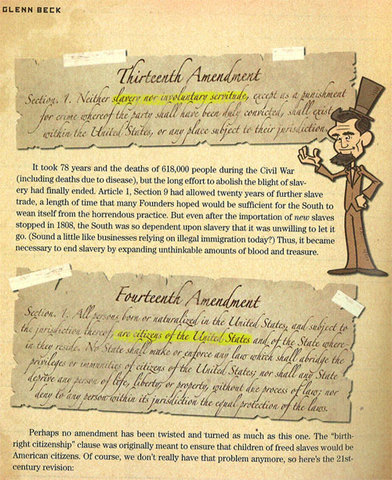 GLENN BECK
Thirteenth Amendment
Section. 1. Neither slavery nor involuntary servitude, except as a punishment
for crime whereof the party shall have been duly convicted, shall exist
within the United States, or any place subject to their jurisdiction.
It took 78 years and the deaths of 618,000 people during the Civil War
(including deaths due to disease), but the long effort to abolish the blight of slav-
ery had finally ended. Article 1, Section 9 had allowed twenty years of further slave
trade, a length of time that many Founders hoped would be sufficient for the South to
wean itself from the horrendous practice. But even after the importation of new slaves
stopped in 1808, the South was so dependent upon slavery that it was unwilling to let it
go. (Sound a little like businesses relying on illegal immigration today?) Thus, it became
necessary to end slavery by expanding unthinkable amounts of blood and treasure.
Fourteenth Amendment
Section. 1. All persons born or naturalized in the United States, and subject to
the jurisdiction thereof, are citizens of the United States and of the State where-
in they reside. No State shall make or enforce any law which shall abridge the
privileges or immunities of citizens of the United States; nor shall any State
deprive any person of life, liberty, or property, without due process of law; nor
deny to any person within its jurisdiction the equal protection of the laws.
Perhaps no amendment has been twisted and turned as much as this one. The "birth-
right citizenship" clause was originally meant to ensure that children of freed slaves would be
American citizens. Of course, we don't really have that problem anymore, so here's the 21st-
century revision: